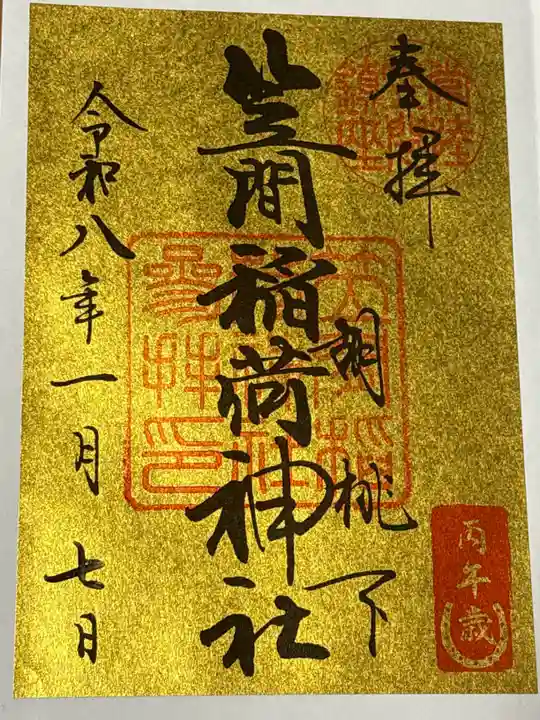 奉拝
胡桃下
笠間稲荷神社
令和八年一月七日
丙午歳